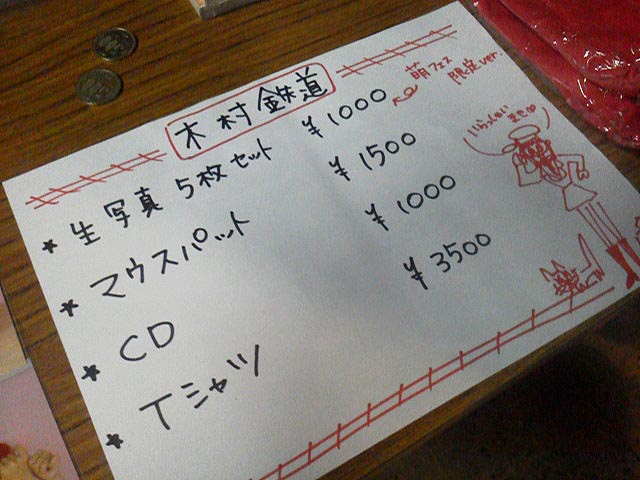 木村鉄道
萌フェス
限定ver.
★ 生写真 5枚セット ¥1000
★ マウスパット ¥1500
★ CD ¥1000
★ Tシャツ ¥3500
いらっしゃい
ませ∞